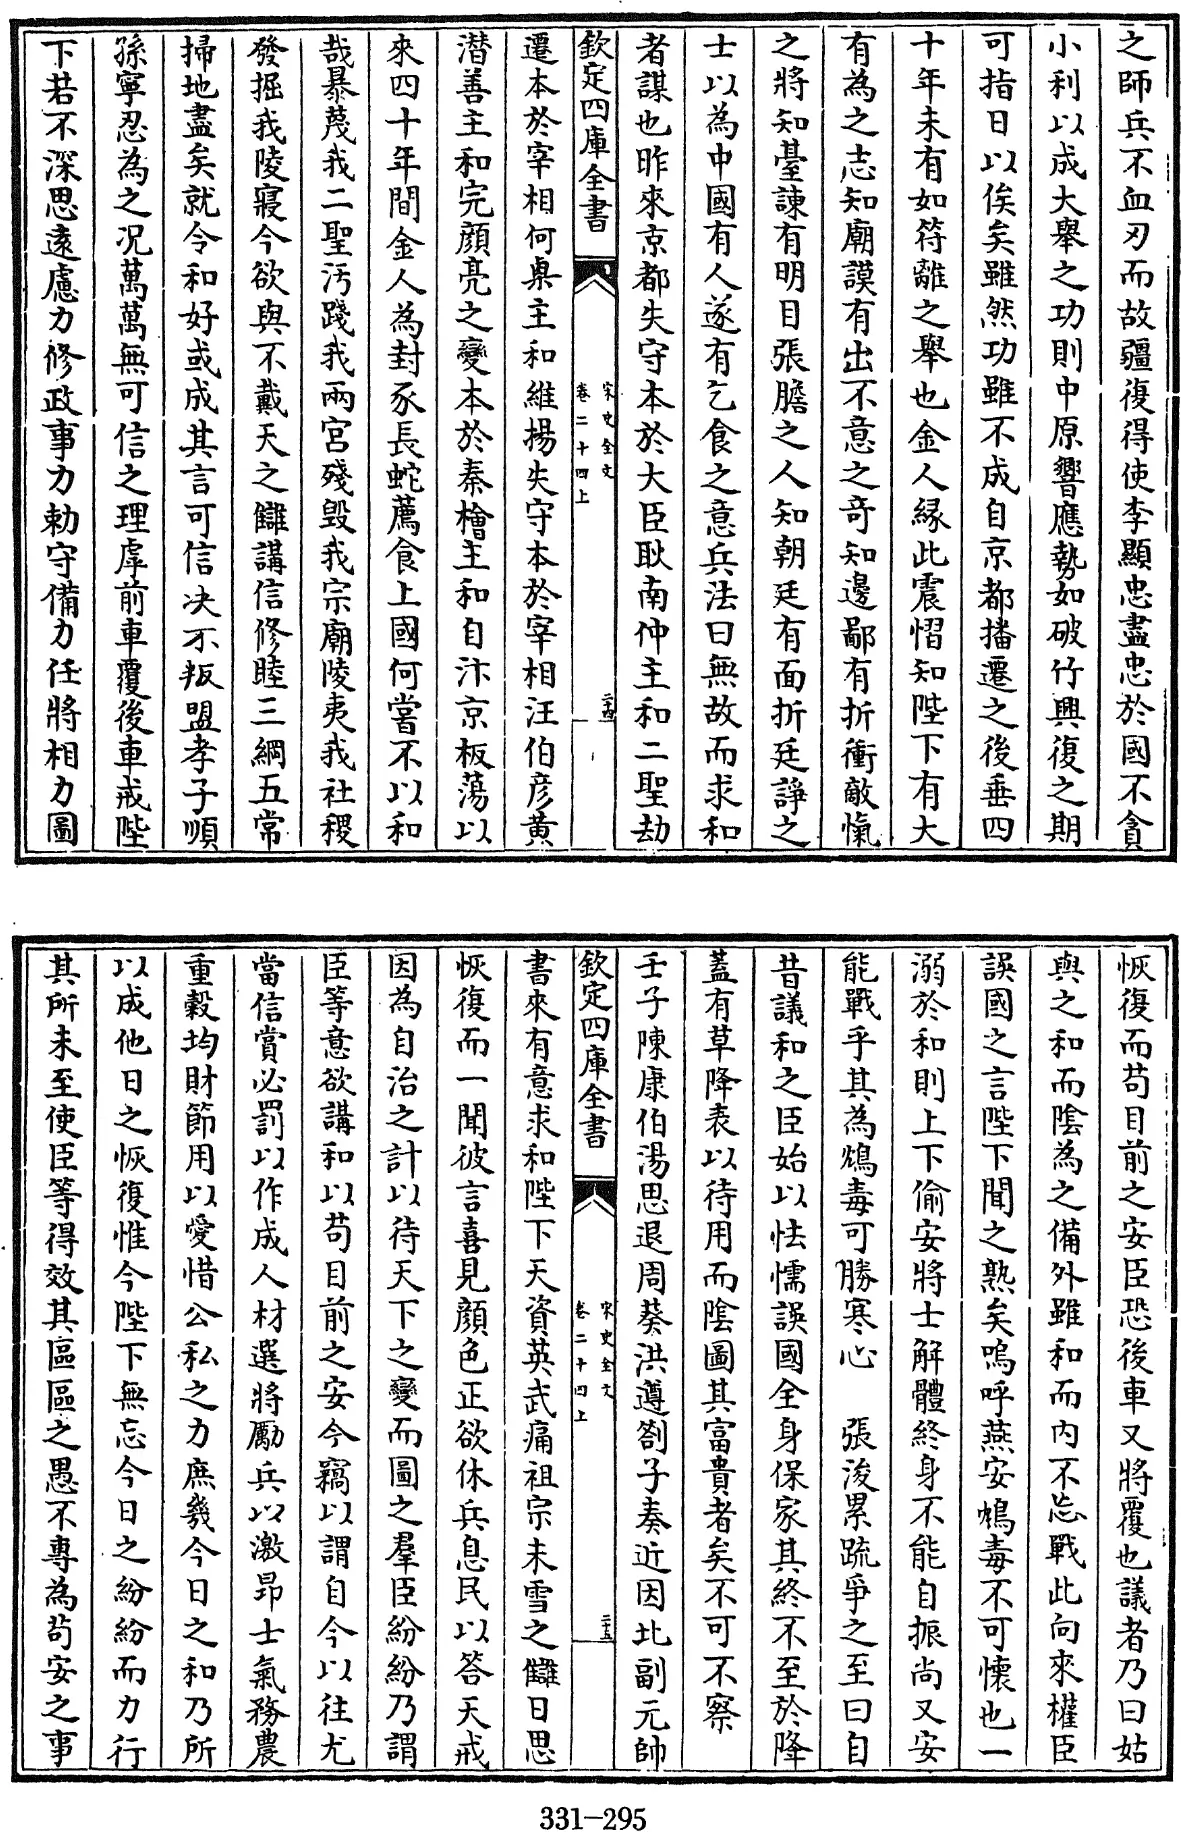 之師兵不血刃而故疆復得使李顯忠盡忠於國不貪
小利以成大舉之功則中原響應勢如破竹興復之期
可指日以俟矣雖然功雖不成自京都播遷之後垂四
十年未有如符離之舉也金人縁此震慴知陛下有大
有為之志知廟謨有出不意之竒知邊鄙有折衝敵愾
之將知臺諫有明目張膽之人知朝廷有面折廷諍之
士以為中國有人遂有乞食之意兵法曰無故而求和
者謀也昨來京都失守本於大臣耿南仲主和二聖劫
欽定四庫全書
宋史全文
卷二十四上
二十四
遷本於宰相何㮚主和維揚失守本於宰相汪伯彦黄
潛善主和完顔亮之變本於秦檜主和自汴京板蕩以
來四十年間金人為封豕長蛇薦食上國何嘗不以和
哉暴蔑我二聖汚踐我兩宮殘毁我宗廟陵夷我社稷
發掘我陵寢今欲與不戴天之讎講信修睦三綱五常
掃地盡矣就令和好或成其言可信决不叛盟孝子順
孫寧忍為之况萬萬無可信之理虖前車覆後車戒陛
下若不深思逺慮力修政事力勅守備力任將相力圖
恢復而苟目前之安臣恐後車又將覆也議者乃曰姑
與之和而隂為之備外雖和而内不忘戰此向來權臣
誤國之言陛下聞之熟矣嗚呼燕安鴆毒不可懷也一
溺於和則上下偷安將士解體終身不能自振尚又安
能戰乎其為鴆毒可勝寒心　張浚累疏爭之至曰自
昔議和之臣始以怯懦誤國全身保家其終不至於降
蓋有草降表以待用而隂圖其富貴者矣不可不察
壬子陳康伯湯思退周葵洪遵劄子奏近因北副元帥
欽定四庫全書
宋史全文
卷二十四上
二十五
書來有意求和陛下天資英武痛祖宗未雪之讎日思
恢復而一聞彼言喜見顔色正欲休兵息民以答天戒
因為自治之計以待天下之變而圖之羣臣紛紛乃謂
臣等意欲講和以苟目前之安今竊以謂自今以往尤
當信賞必罰以作成人材選將勵兵以激昂士氣務農
重穀均財節用以愛惜公私之力庶幾今日之和乃所
以成他日之恢復惟今陛下無忘今日之紛紛而力行
其所未至使臣等得效其區區之愚不專為苟安之事
331-295